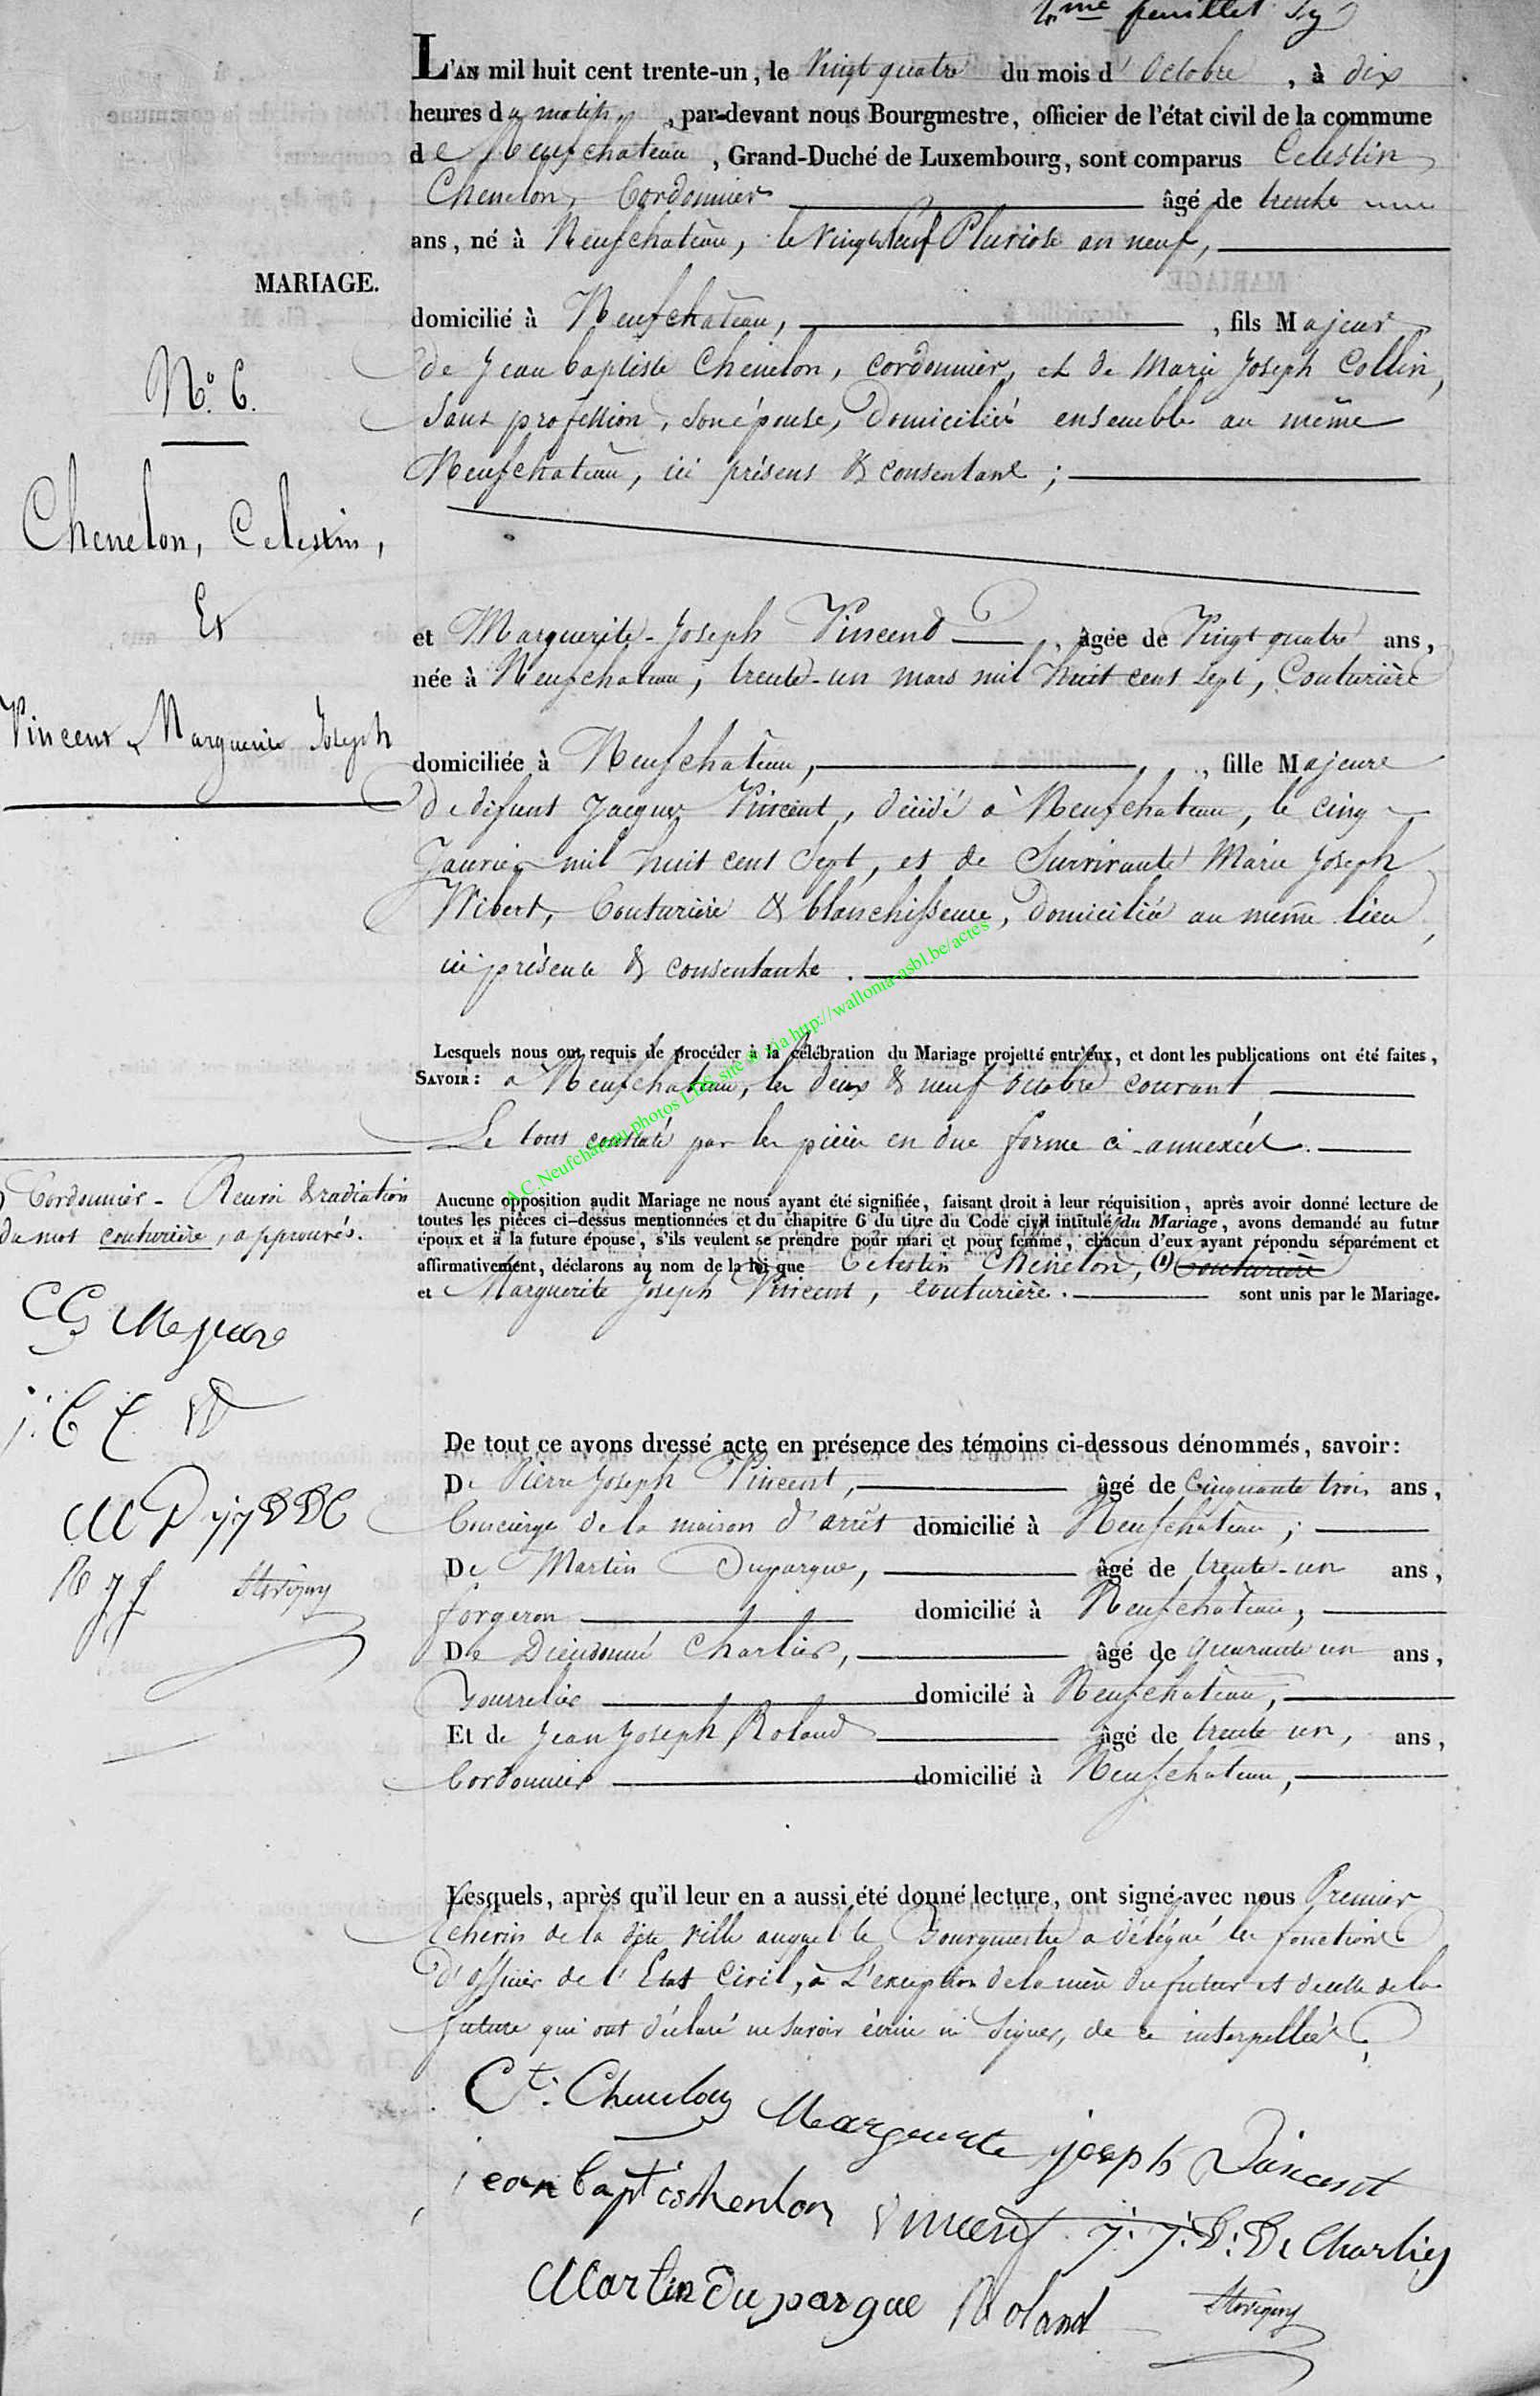 4me feuillet
L'AN mil huit cent trente-un, le Vingt quatre du mois d' Octobre, à dix
heures du matin, par-devant nous Bourgmestre, officier de l'état civil de la commune
de Neufchateau, Grand-Duché de Luxembourg, sont comparus Celestin
Chenelon, Cordonnier âgé de trente un
ans, né à Neufchateau, le Vingt neuf Pluviose an neuf,
MARIAGE.
domicilié à Neufchateau, , fils Majeur
de Jean baptiste Chenelon, cordonnier, et de Marie Joseph Collin,
Sans profession, son épouse, Domiciliés ensemble au même
Neufchateau, ici présens & consentans ;
N.o 6.
Chenelon, Celestin,
Et
Vincent, Marguerite Joseph
et Marguerite-Joseph Vincent , âgée de Vingt quatre ans,
née à Neufchateau, trente-un mars mil huit cent sept, Couturière
domiciliée à Neufchateau, , fille Majeure
De défunt Jacques Vincent, décédé à Neufchateau, le cinq
Janvier mil huit cent Sept, et de Survivante Marie Joseph
Wibert, Couturière & blanchisseuse, Domiciliée au même lieu,
ici présente & consentante .
Lesquels nous ont requis de procéder à la célébration du Mariage projetté entr'eux, et dont les publications ont été faites,
SAVOIR : a Neufchateau, les deux & neuf octobre courant
Le tout constaté par les pièces en due forme ci-annexées.
A.C.Neufchateau photos LDS site w via http://wallonia-asbl.be/actes
Cordonnier - Renvoi & radiation
du mot couturière, approuvés.
Aucune opposition audit Mariage ne nous ayant été signifiée, faisant droit à leur réquisition, après avoir donné lecture de
toutes les pièces ci-dessus mentionnées et du chapitre 6 du titre du Code civil intitulé du Mariage, avons demandé au futur
époux et à la future épouse, s'ils veulent se prendre pour mari et pour femme, chacun d'eux ayant répondu séparément et
affirmativement, déclarons au nom de la loi que Celestin Chenelon, (1) Couturière
et Marguerite Joseph Vincent, couturière. sont unis par le Mariage.
De tout ce avons dressé acte en présence des témoins ci-dessous dénommés, savoir :
De Pierre Joseph Vincent, âgé de Cinquante trois ans,
Concierge de la maison d'arrêt domicilié à Neufchateau ;
De Martin Duparque, âgé de trente-un ans,
forgeron domicilié à Neufchateau ;
De Dieudonné Charlier, âgé de quarante un ans,
Bourrelier domicilé à Neufchateau,
Et de Jean Joseph Roland âgé de trente un, ans,
Cordonnier domicilié à Neufchateau,
Lesquels, après qu'il leur en a aussi été donné lecture, ont signé avec nous Premier
Echevin de la dite Ville auquel le Bourgmestre a délégué les fonctions
D'officier de l'Etat Civil, à L'exception de la mère du futur et de celle de la
future qui ont déclaré ne savoir écrire ni Signer, de ce interpellées ;
Ct. Chenelon Marguerite joseph Vincent
jean baptis chenlon Vincent J. J. D. D. Charlier
Martin Duparque Roland